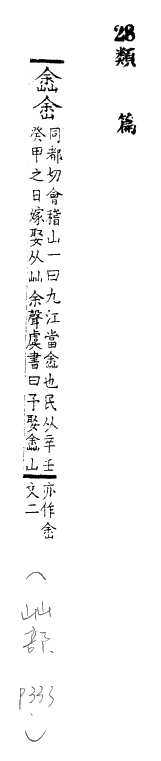 28類篇
嵞峹
同都切會稽山一曰九江當嵞也民以辛壬
癸甲之日嫁娶从屾余聲虞書曰予娶嵞山
亦作峹
文二
(屾部 p333.)